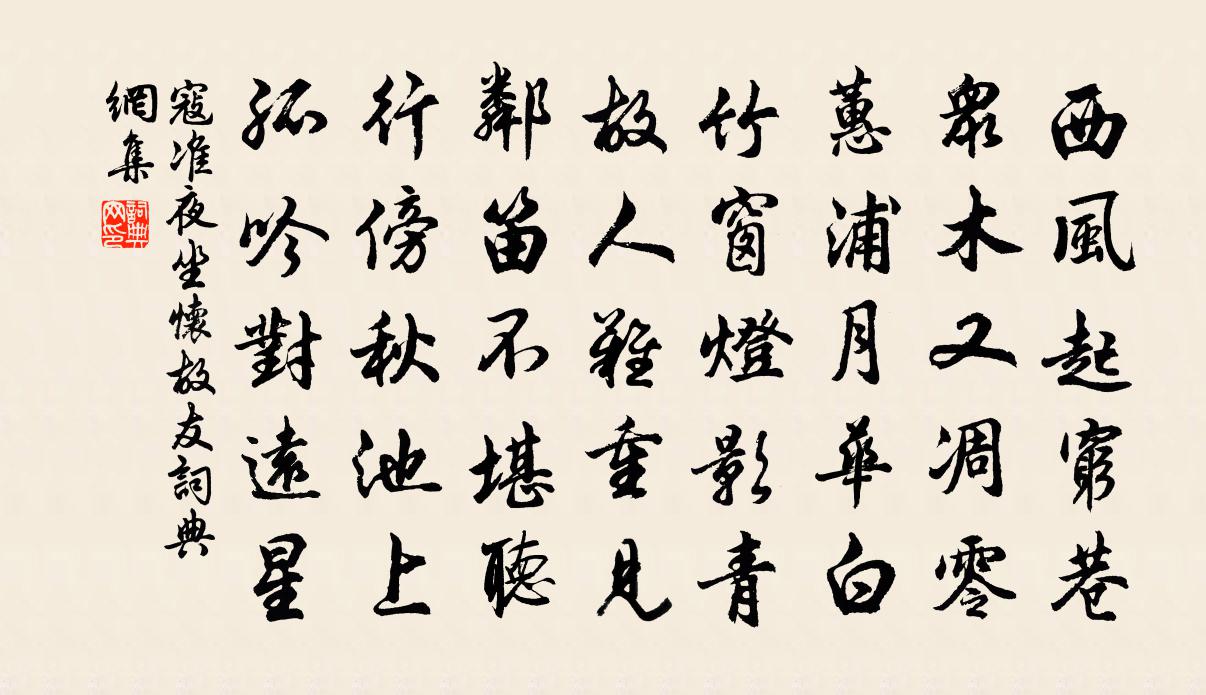 西風起窮巷
衆木又凋零
蕙浦月華白
竹窗燈影青
故人難重見
鄰笛不堪聽
行傍秋池上
孤吟對遠星
寇准夜坐懷故友詞典
網集
詞典
网印